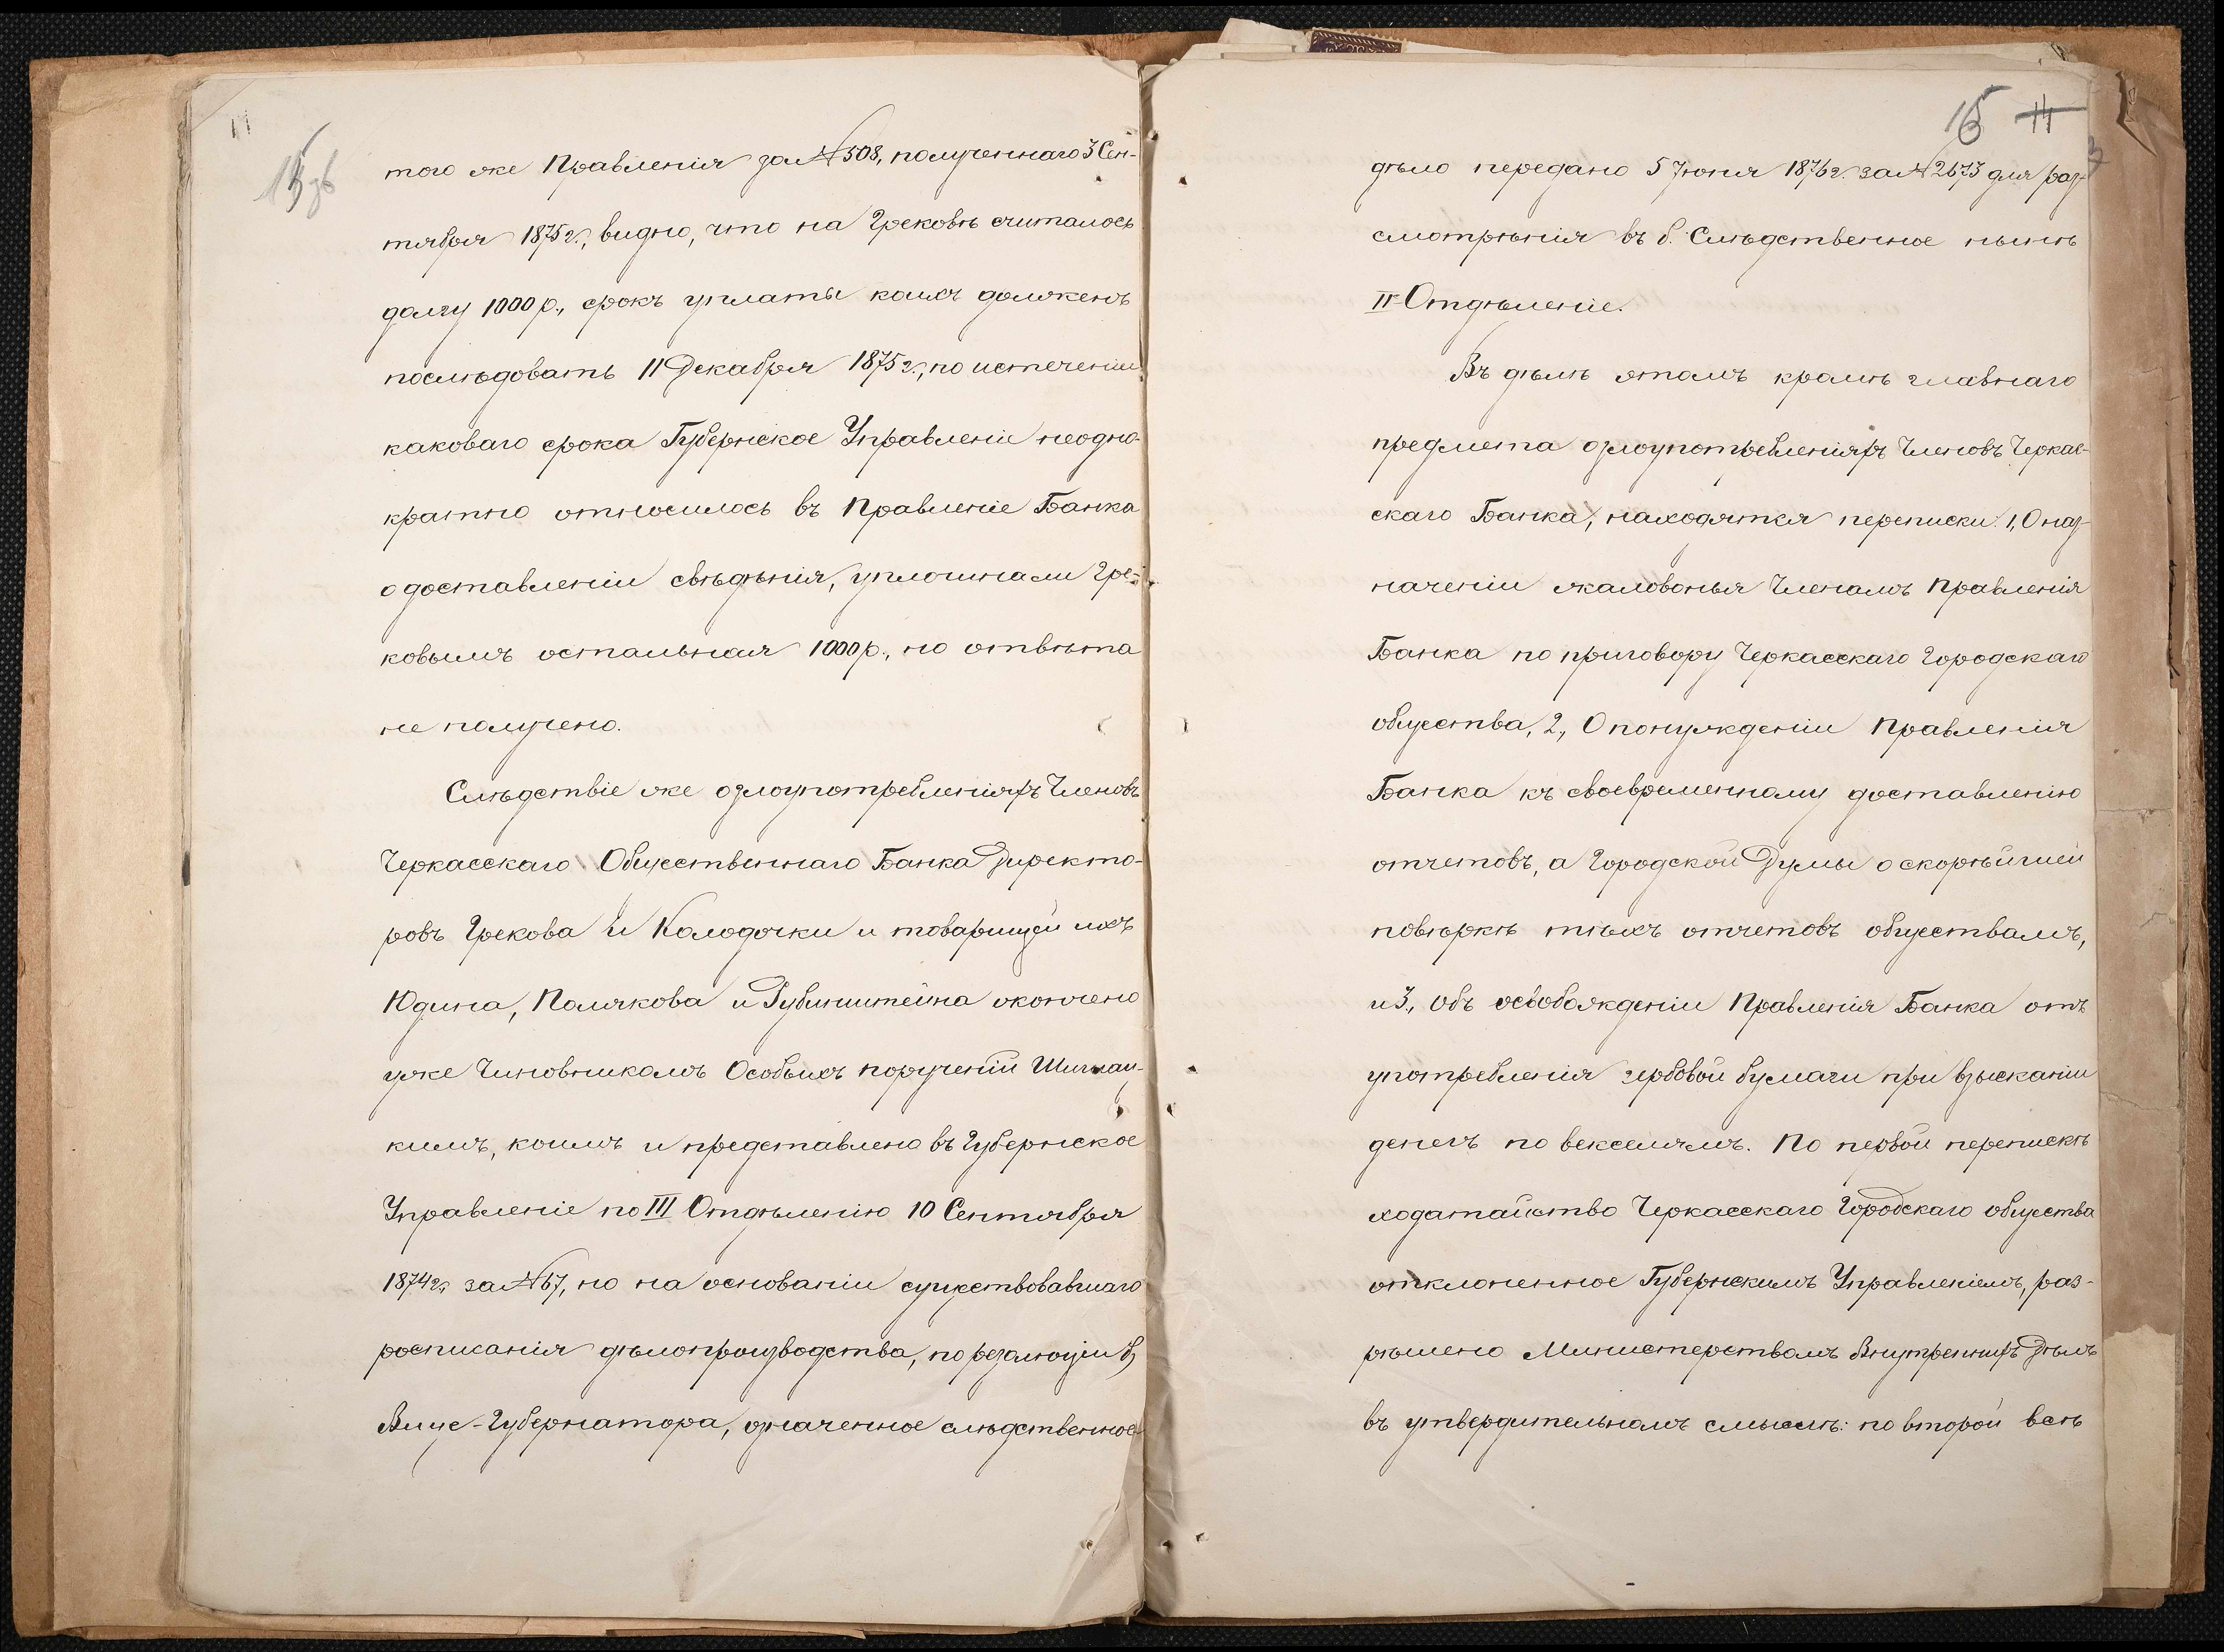 11
того же Правленія за № 508, полученнаго 3 Сен-
тября 1875 г., видно, что на Грековѣ считалось
долгу 1000 р., срокъ уплаты коихъ долженъ
послѣдовать 11 Декабря 1875 г., по истеченіи
каковаго срока Губернское Управленіе неодно-
кратно относилось въ Правленіе Банка
о доставленіи свѣдѣнія, уплочина ли Гре-
ковымъ остальная 1000 р., но отвѣта
не получено.
Слѣдствіе же о злоупотребленіяхъ Членовъ
Черкасскаго Общественнаго Банка Директо-
ровъ Грекова и Колодочки и товарищей ихъ
Юдина, Полякова и Рубинштейна окончено
уже Чиновникомъ Особыхъ порученій
кимъ, коимъ и представлено въ Губернское
Управленіе по III Отдѣленію 10 Сентября
1874 г. за № 67, но на основаніи существовавшаго
росписанія дѣлопроизводства, по резолюціи
Вице-Губернатора, означенное слѣдственное
15
дѣло передано 5 Іюня 1876 г. за № 2673 для раз-
смотрѣнія въ б. Слѣдственное нынѣ
II Отдѣленіе.
Въ дѣлѣ этомъ кромѣ главнаго
предмета о злоупотребленіяхъ Членовъ Черкас-
скаго Банка, находятся переписки: 1, О наз-
наченіи жалованья Членамъ Правленія
Банка по приговору Черкасскаго Городскаго
общества, 2, О понужденіи Правленія
Банка къ своевременному доставленію
отчетовъ, а Городской Думы о скорѣйшей
повѣркѣ тѣхъ отчетовъ обществамъ,
и 3, Объ освобожденіи Правленія Банка отъ
употребленія гербовой бумаги при взысканіи
денегъ по векселямъ. По первой перепискѣ
ходатайство Черкасскаго Городскаго общества
отклоненное Губернскимъ Управленіемъ, раз-
рѣшено Министерствомъ Внутреннихъ Дѣлъ
въ утвердительномъ смыслѣ: по второй всѣ